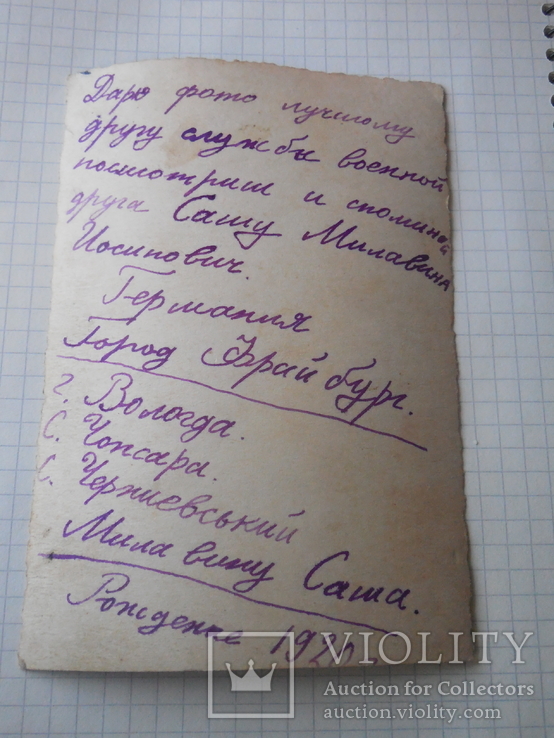 Дарю фото лучшому
другу службы военной
посмотриш и споминай
друга Сашу Милавина
Иосипович.
Германия
Город Фрайбург.
г. Вологда.
с. Чопсара.
с. Черниевський
Милавину Саша.
Рождение 1920
VIOLITY
Auction for Collectors
auction.violity.com